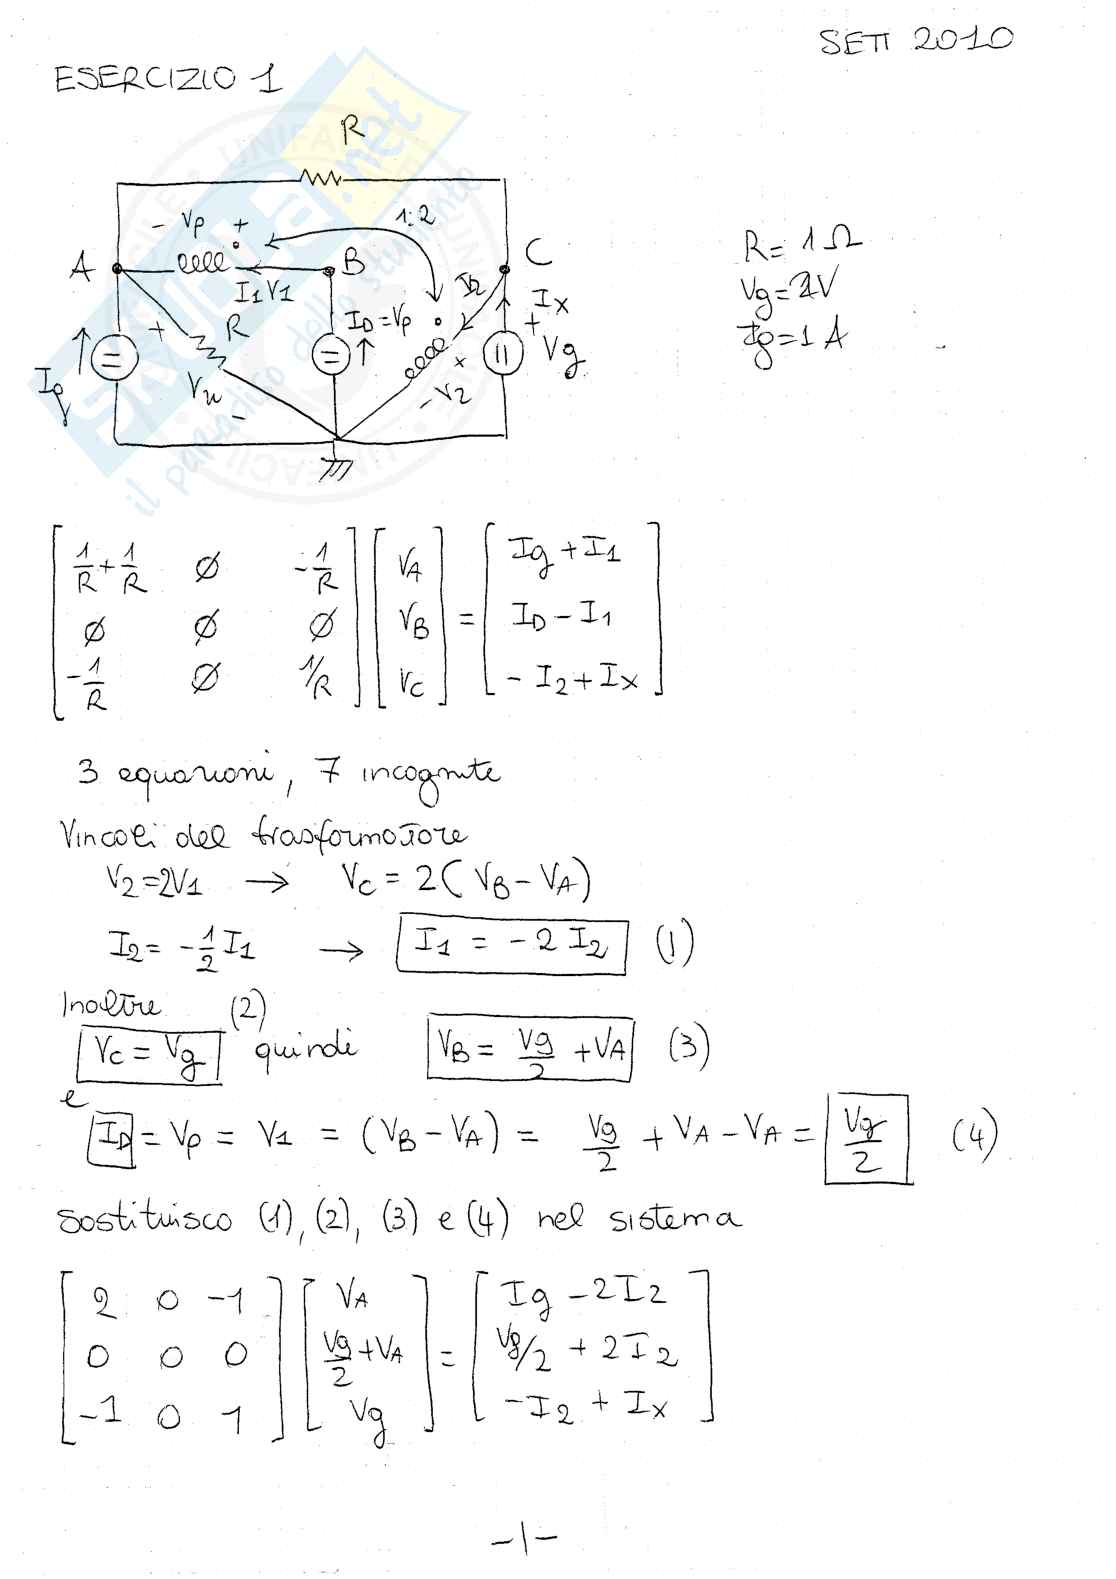 SETT 2010
ESERCIZIO 1
R
- Vp +
1:2
A
B
C
I1 V1
I2
Ix
R
ID = Vp
+
+
Vg
Ig
Vu
+
- V2
-
R = 1 Ω
Vg = 2V
Ig = 1 A
[ 1/R + 1/R ∅ -1/R ] [ VA ] = [ Ig + I1 ]
[ ∅ ∅ ∅ ] [ VB ] = [ ID - I1 ]
[ -1/R ∅ 1/R ] [ VC ] = [ - I2 + Ix ]
3 equazioni, 7 incognite
Vincoli del trasformatore
V2 = 2V1 → VC = 2 ( VB - VA )
I2 = -1/2 I1 → I1 = -2 I2 (1)
Inoltre (2)
VC = Vg quindi VB = Vg/2 + VA (3)
e
ID = Vp = V1 = (VB - VA) = Vg/2 + VA - VA = Vg/2 (4)
sostituisco (1), (2), (3) e (4) nel sistema
[ 2 0 -1 ] [ VA ] = [ Ig - 2I2 ]
[ 0 0 0 ] [ Vg/2 + VA ] = [ Vg/2 + 2I2 ]
[ -1 0 1 ] [ Vg ] = [ - I2 + Ix ]
-1-